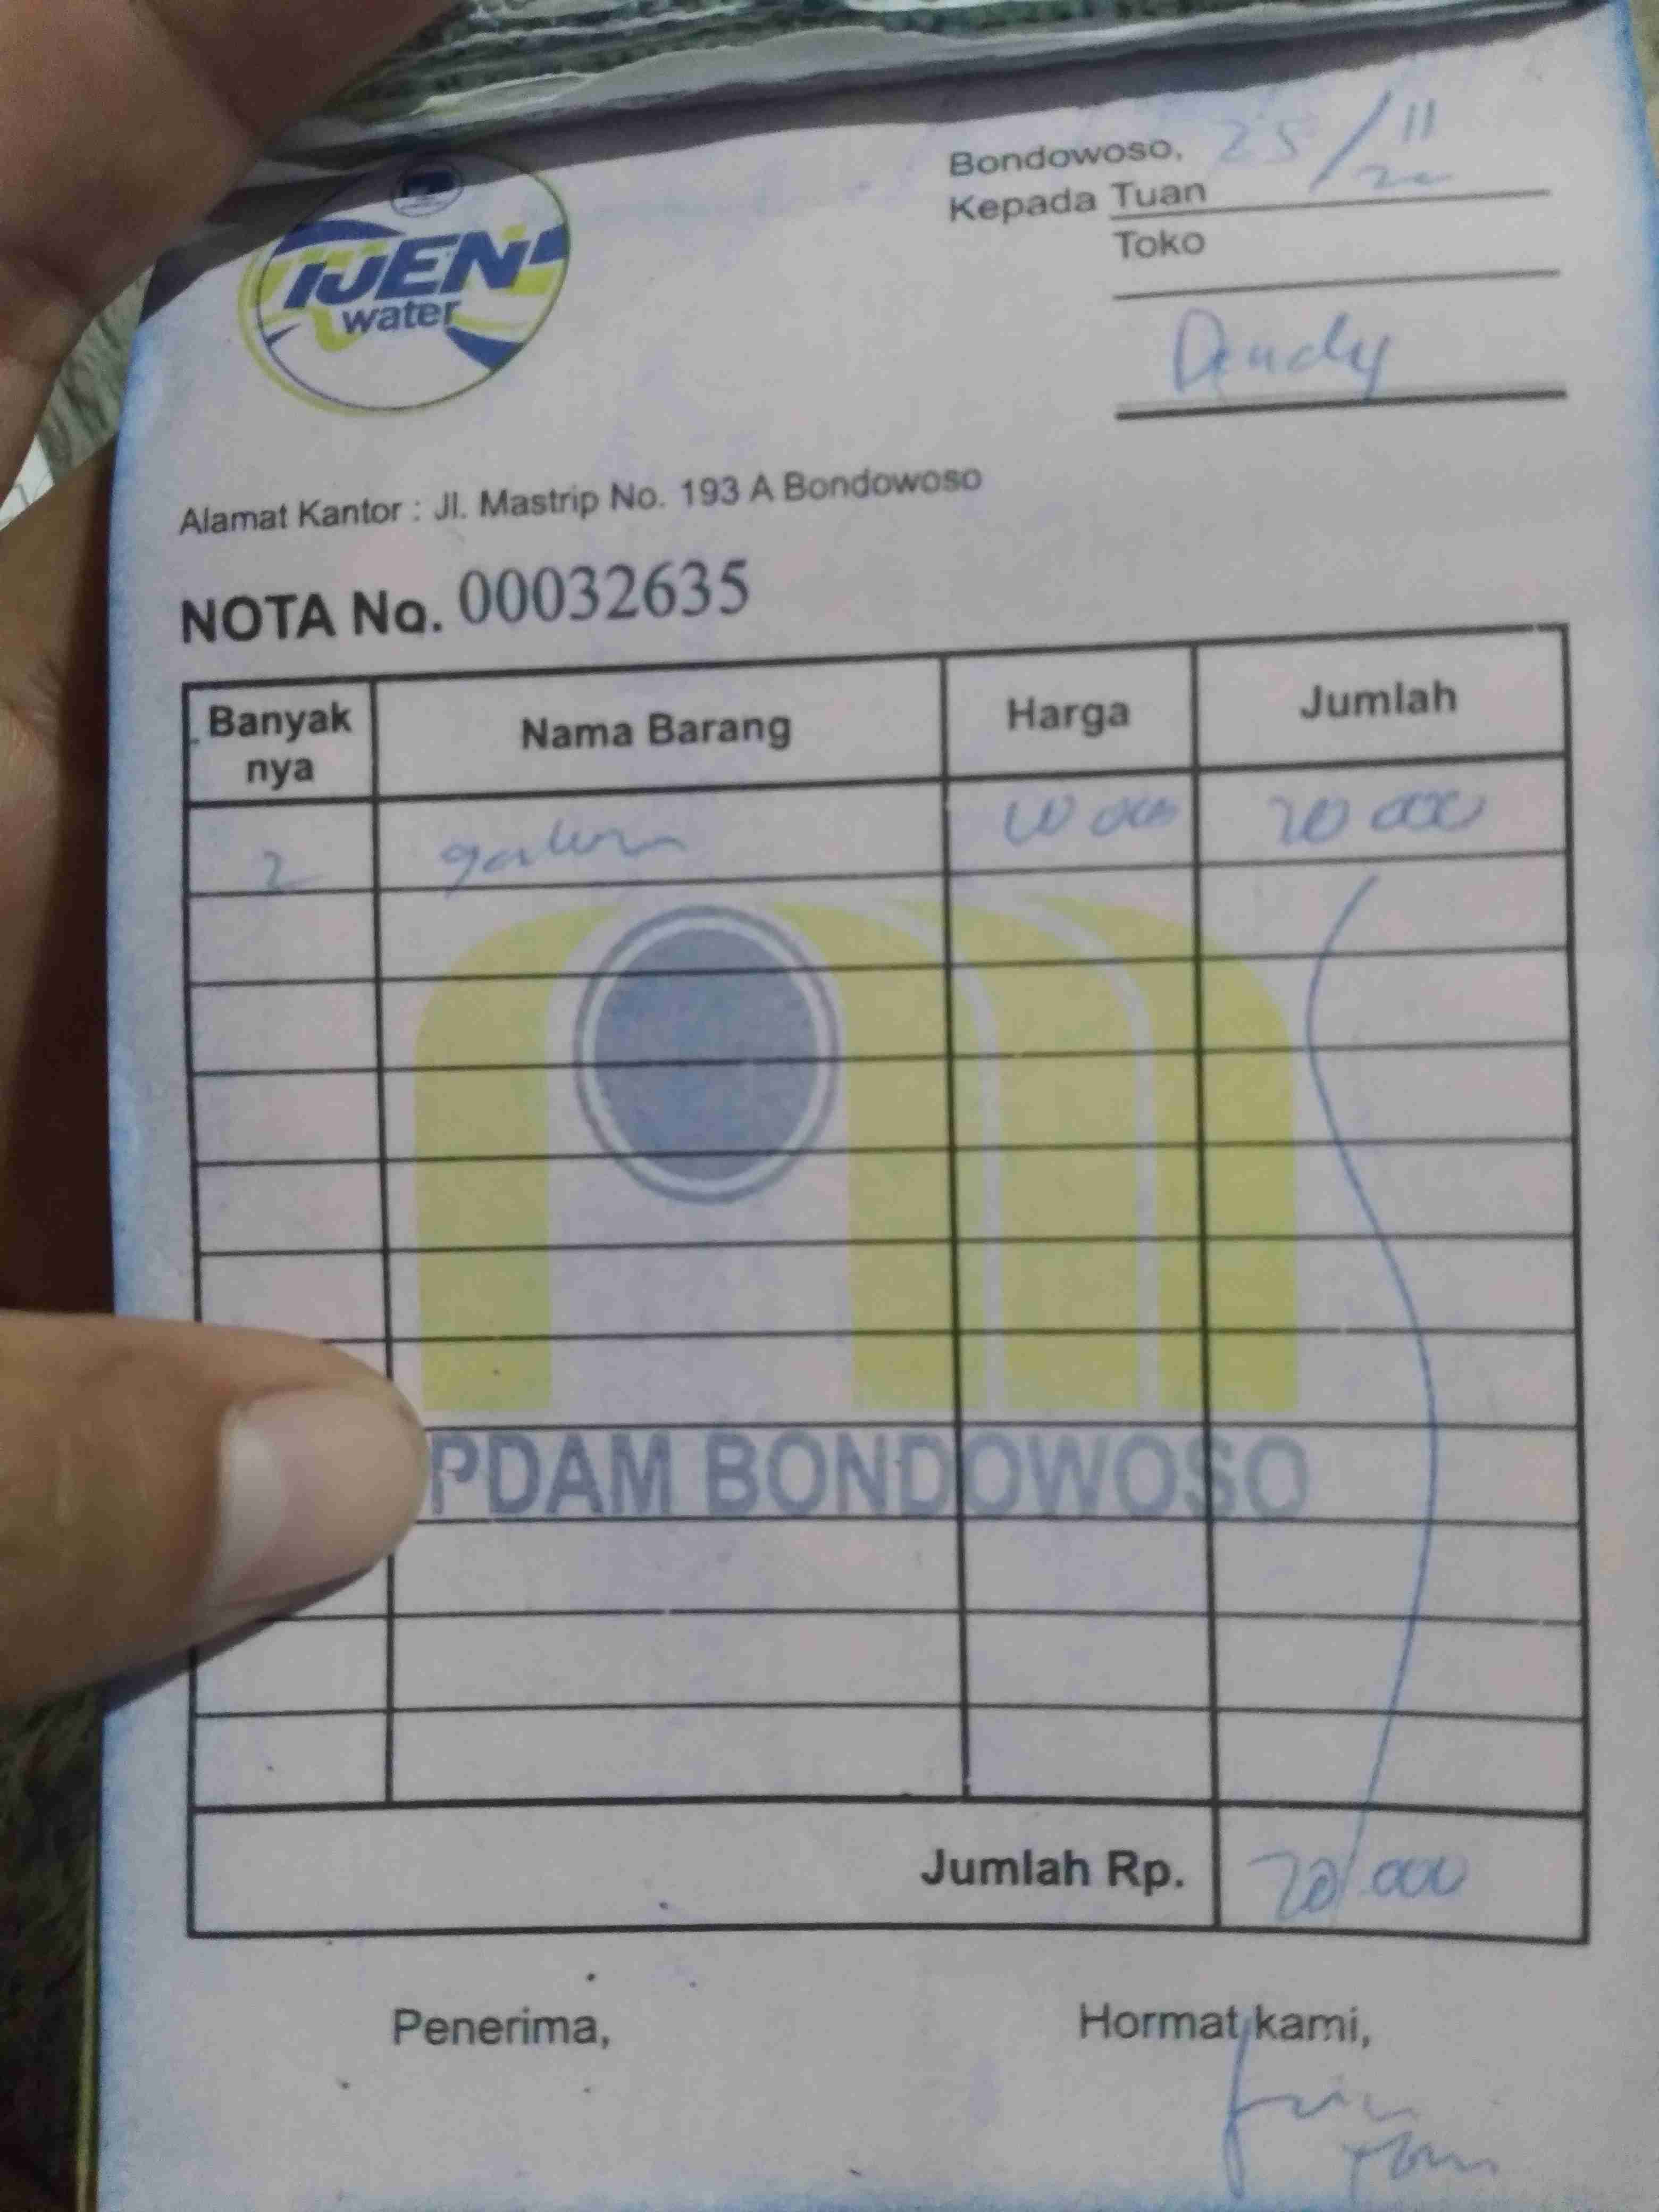 IJEN
water
Bondowoso, 25/11
Kepada Tuan
Toko
Dendy
Alamat Kantor : Jl. Mastrip No. 193 A Bondowoso
NOTA No. 00032635
Banyak nya Nama Barang Harga Jumlah
2 galon 10 000 20 000
PDAM BONDOWOSO
Jumlah Rp. 20.000
Penerima, Hormat kami,